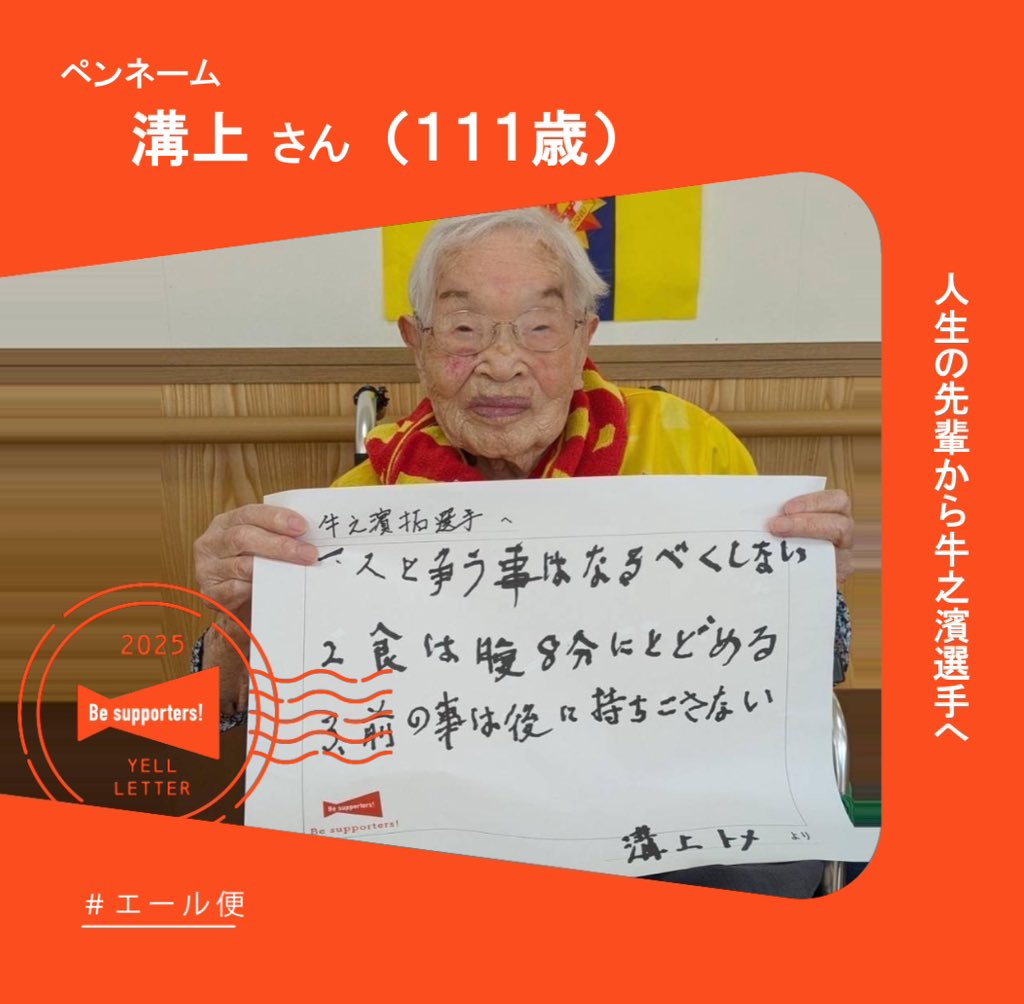 ペンネーム
溝上 さん（111歳）
人生の先輩から牛之濵選手へ
牛之濵拓選手へ
一、人と争う事はなるべくしない
2 食は腹8分にとどめる
3、前の事は後に持ちこさない
Be supporters!
Be supporters!
溝上トメ より
2025
Be supporters!
YELL
LETTER
#エール便